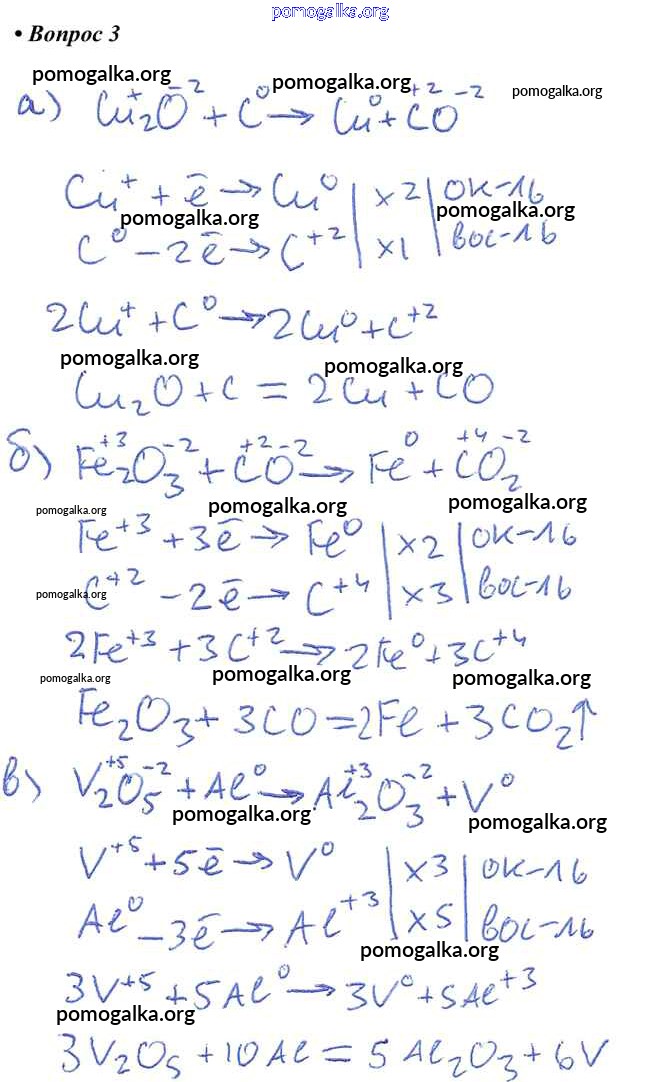 pomogalka.org
• Вопрос 3
pomogalka.org pomogalka.org pomogalka.org
а) Cu₂⁺O⁻² + C⁰ → Cu⁰ + C⁺²O⁻²
Cu⁺ + ē → Cu⁰ | ×2 | ок-ль
pomogalka.org pomogalka.org
C⁰ - 2ē → C⁺² | ×1 | вос-ль
2Cu⁺ + C⁰ → 2Cu⁰ + C⁺²
pomogalka.org pomogalka.org
Cu₂O + C = 2Cu + CO
б) Fe₂⁺³O₃⁻² + C⁺²O⁻² → Fe⁰ + C⁺⁴O₂⁻²
pomogalka.org pomogalka.org pomogalka.org
Fe⁺³ + 3ē → Fe⁰ | ×2 | ок-ль
pomogalka.org
C⁺² - 2ē → C⁺⁴ | ×3 | вос-ль
2Fe⁺³ + 3C⁺² → 2Fe⁰ + 3C⁺⁴
pomogalka.org pomogalka.org pomogalka.org
Fe₂O₃ + 3CO = 2Fe + 3CO₂↑
в) V₂⁺⁵O₅⁻² + Al⁰ → Al₂⁺³O₃⁻² + V⁰
pomogalka.org pomogalka.org
V⁺⁵ + 5ē → V⁰ | ×3 | ок-ль
Al⁰ - 3ē → Al⁺³ | ×5 | вос-ль
pomogalka.org
3V⁺⁵ + 5Al⁰ → 3V⁰ + 5Al⁺³
pomogalka.org
3V₂O₅ + 10Al = 5Al₂O₃ + 6V